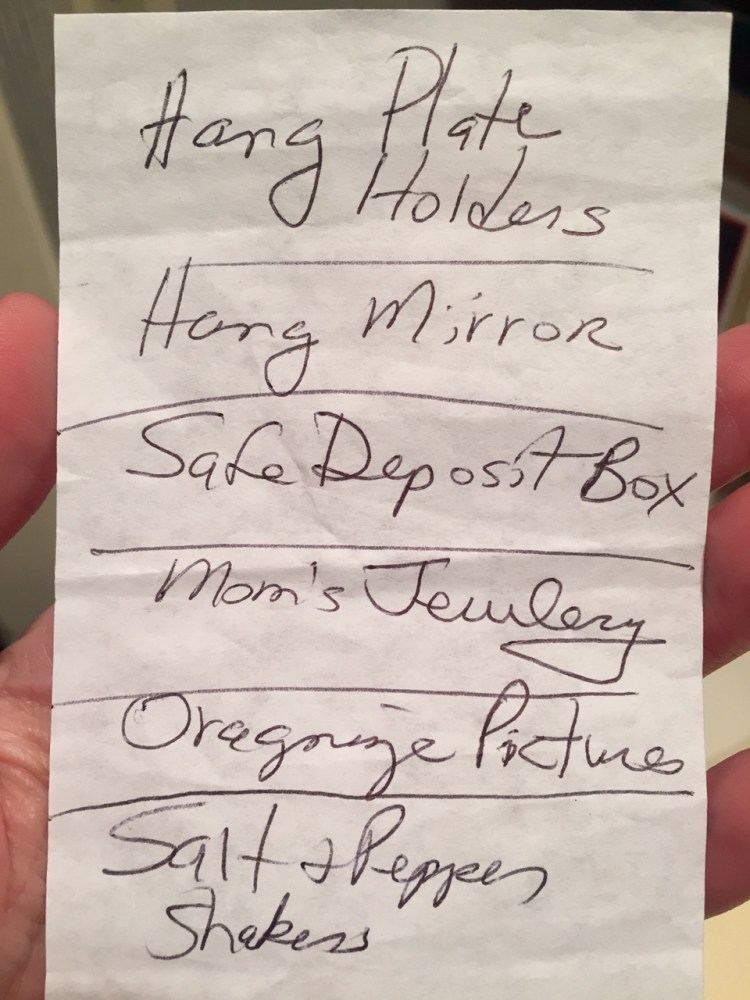 Hang Plate
Holders
Hang Mirror
Safe Deposit Box
Mom's Jewlery
Oragnize Pictures
Salt & Pepper
Shakers